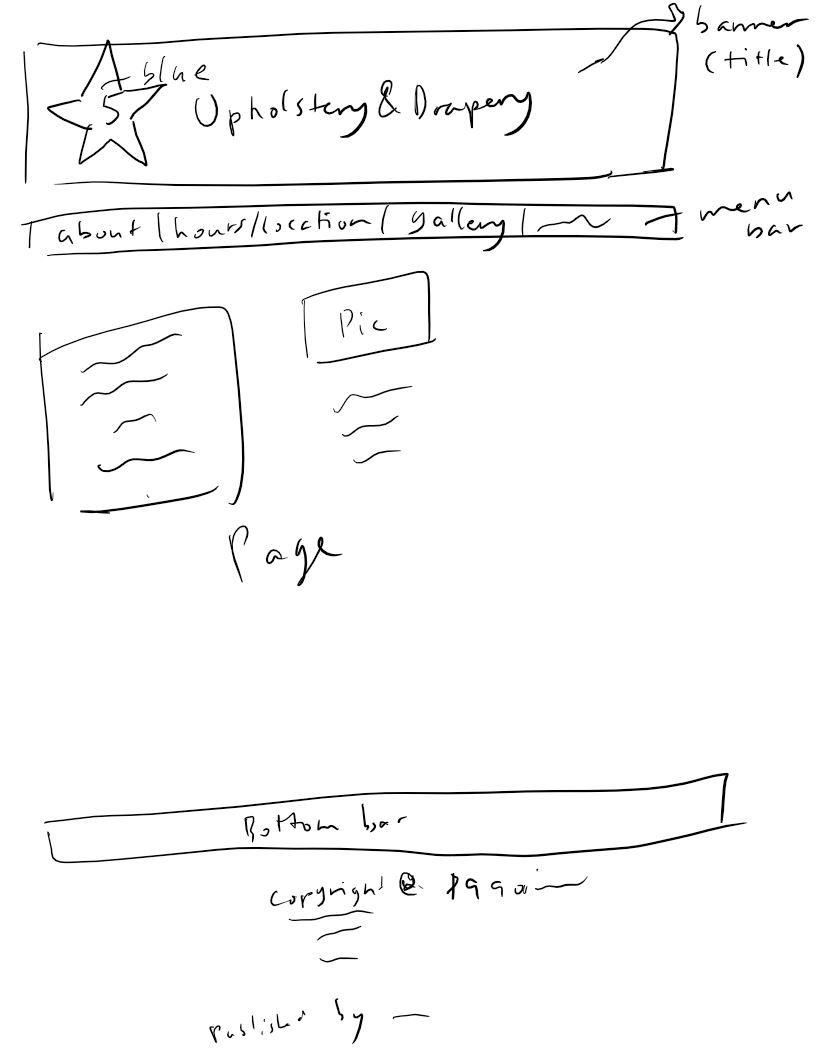 banner
(title)
blue
5
Upholstery & Drapery
about | hours/location | gallery |
menu
bar
Pic
Page
Bottom bar
Copyright @ 1990
Published by